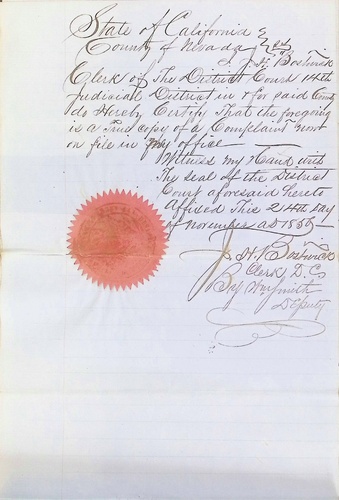 State of California
County of Nevada } SS
J. H. Bostwick
Clerk of The District Court 14th
Judicial District in & for said County
do Hereby Certify That the foregoing
is a True copy of a Complaint now
on file in my office
Witness my Hand with
The seal of the District
Court aforesaid hereto
Affixed This 24th day
of November AD
J. H. Bostwick
Clerk D. C.
By Wm Smith
Deputy